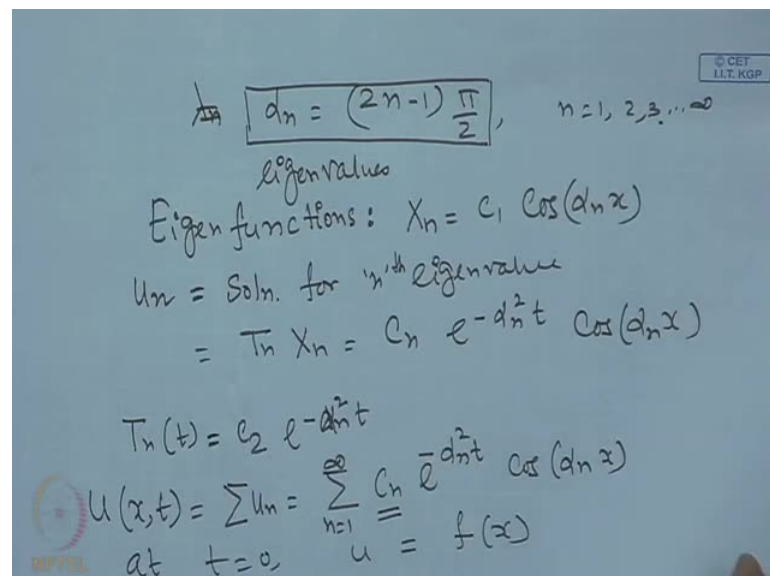 © CET
I.I.T. KGP
αn = (2n-1) π/2, n=1, 2, 3, ... ∞
eigenvalues
Eigenfunctions: Xn = C1 Cos(αn x)
un = Soln. for 'n'th eigenvalue
= Tn Xn = Cn e^-αn²t Cos(αn x)
Tn(t) = C2 e^-αn²t
u(x,t) = Σun = Σ_{n=1}^{∞} Cn e^-αn²t Cos(αn x)
at t=0, u = f(x)
NPTEL